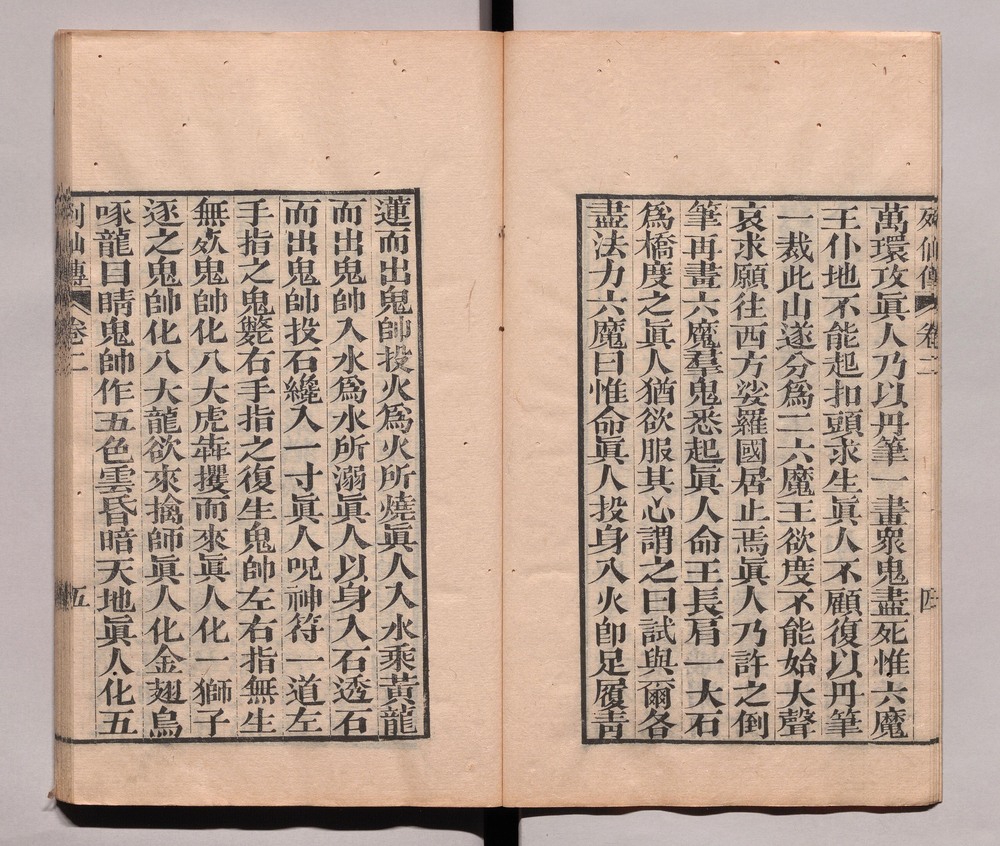 列仙傳 卷二 四
萬環攻眞人乃以丹筆一畫衆鬼盡死惟六魔
王仆地不能起扣頭求生眞人不顧復以丹筆
一裁此山遂分爲二六魔王欲度不能始大聲
哀求願往西方娑羅國居止焉眞人乃許之倒
筆再畫六魔羣鬼悉起眞人命王長肩一大石
爲橋度之眞人猶欲服其心謂之曰試與爾各
盡法力六魔曰惟命眞人投身入火卽足履靑
蓮而出鬼帥投火爲火所燒眞人入水乘黃龍
而出鬼帥入水爲水所溺眞人以身入石透石
而出鬼帥投石纔入一寸眞人呪神符一道左
手指之鬼斃右手指之復生鬼帥左右指無生
無死鬼帥化八大虎犇攫而來眞人化一獅子
逐之鬼帥化八大龍欲來擒師眞人化金翅鳥
啄龍目睛鬼帥作五色雲昏暗天地眞人化五
列仙傳 卷二 五